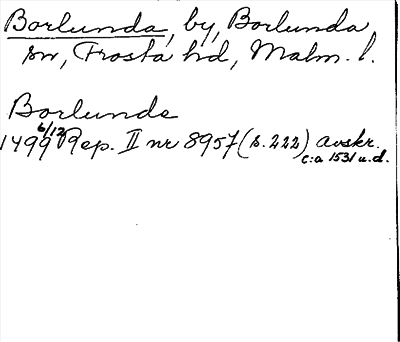 Borlunda, by, Borlunda
sn, Frosta hd, Malm. l.
Borlunde
1499 6/12 Rep. II nr 8957 (s. 222) avskr.
c:a 1531 u.d.